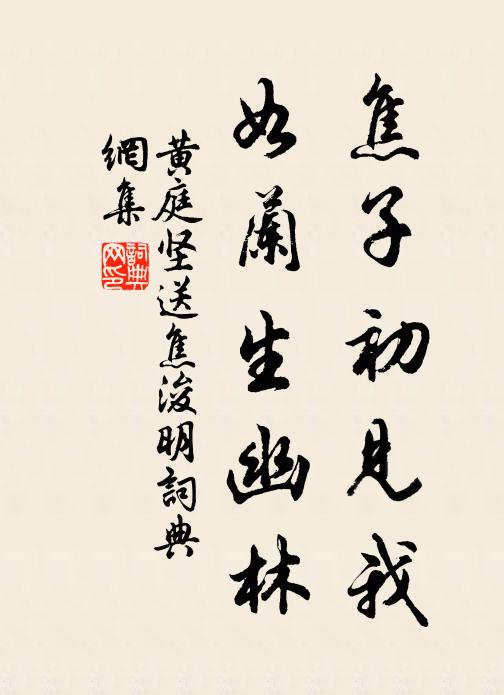 焦子初見我
如蘭生幽林
黄庭坚送焦浚明詞典
網集
詞典
网印